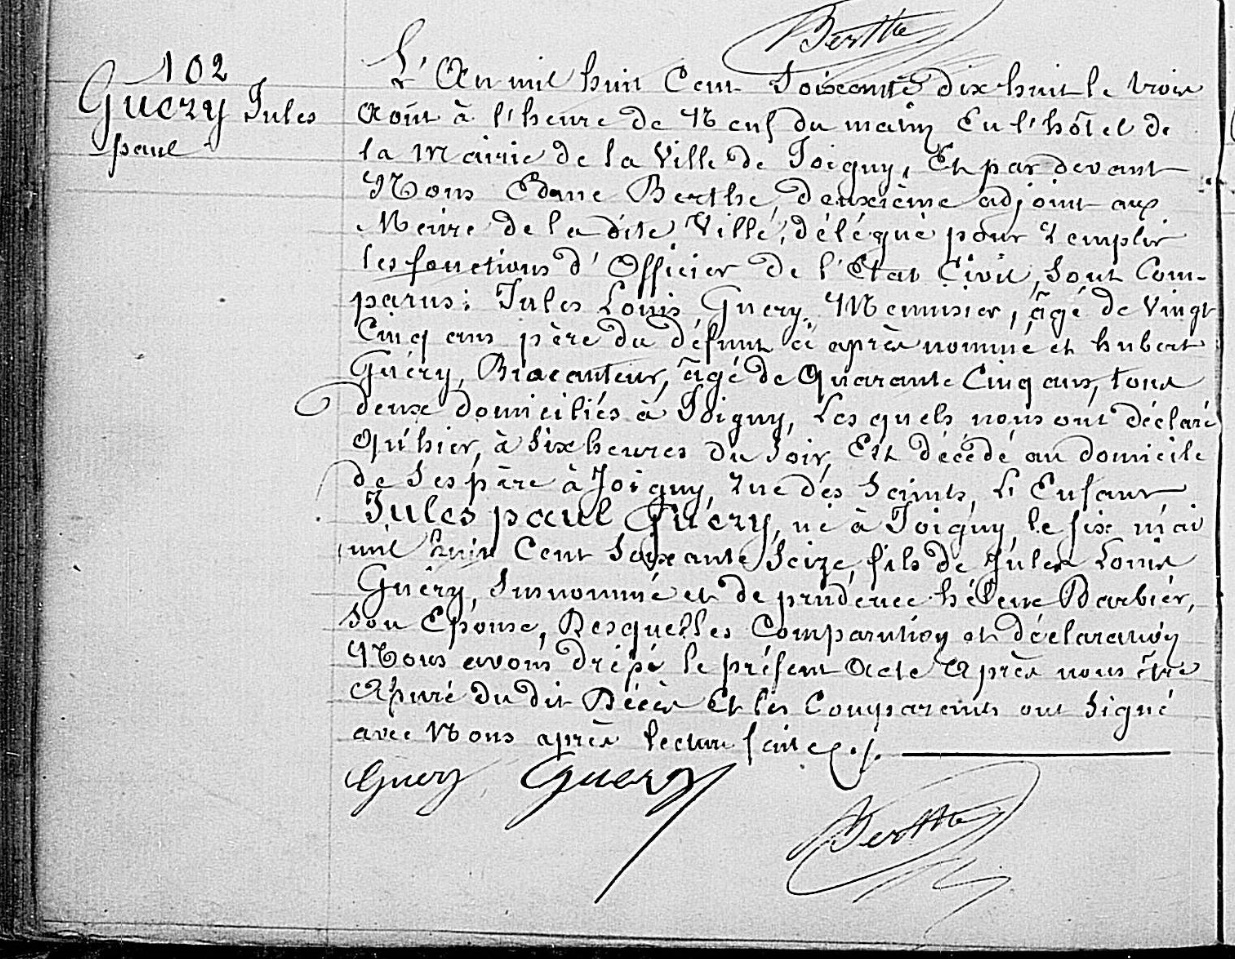 Berthe
102
Guéry Jules
paul
L'An mil huit Cent Soixante dix huit le trois
Août à l'heure de Neuf du matin En l'hôtel de
la Mairie de la Ville de Joigny, Et par devant
Nous Edme Berthe, deuxième adjoint aux
Maire de la dite Ville, délégué pour remplir
les fonctions d'Officier de l'Etat Civil, Sont Com-
parus: Jules Louis Guéry, Menuisier, âgé de Vingt
Cinq ans père du défunt ci après nommé et hubert
Guéry, Brocanteur, âgé de Quarante Cinq ans, tous
deux domiciliés à Joigny, Les quels nous ont déclaré
Qu'hier, à Six heures du Soir, Est décédé au domicile
de Ses père à Joigny, rue des Saints, L'Enfant
Jules paul Guéry, né à Joigny, le six mai
mil huit Cent Soixante Seize, fils de Jules Louis
Guéry, Susnommé et de prudence hélène Barbier,
Son Epouse, Desquelles Comparution et déclaration
Nous avons drésé le présent Acte Après nous être
Assuré du dit Décès Et les Comparants ont Signé
avec Nous après lecture faite./.
Guery Guery
Berthe